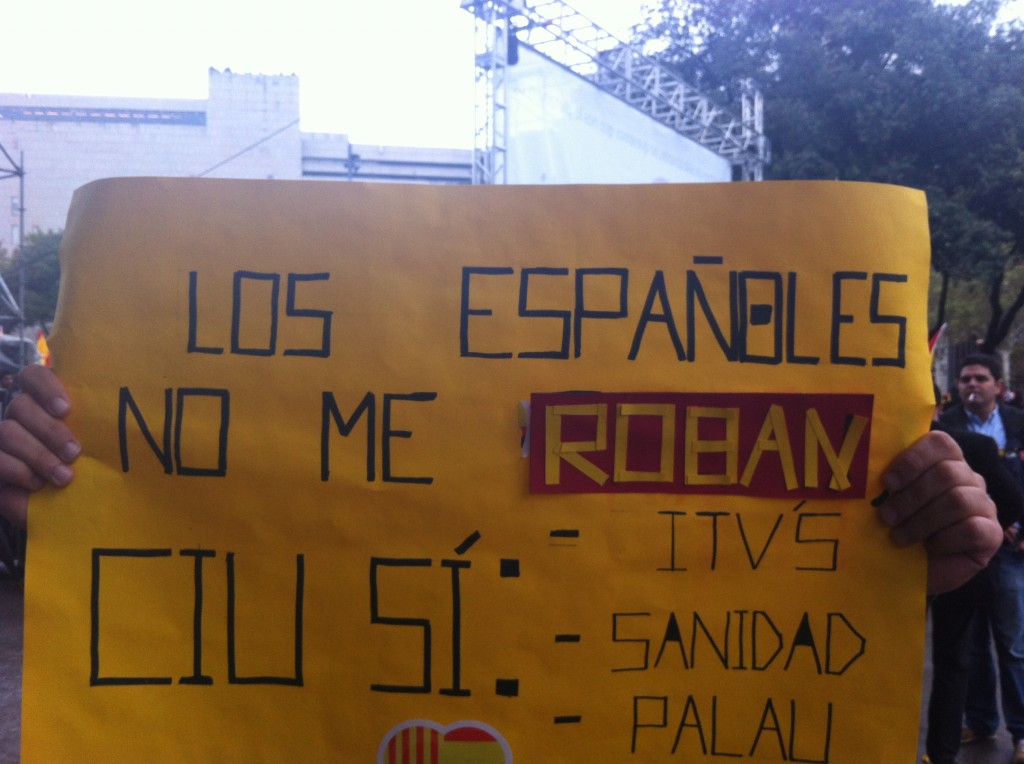 LOS ESPAÑOLES
NO ME ROBAN
CIU SÍ: - ITV'S
- SANIDAD
- PALAU